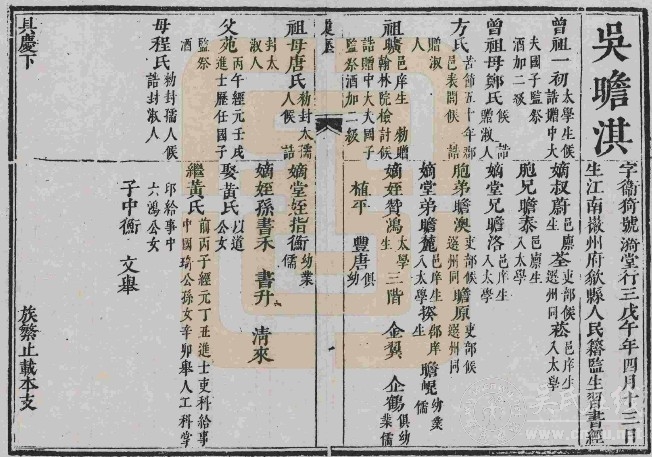 吳瞻淇
字衛猗號漪堂行三戊午年四月十三日
生江南徽州府歙縣人民籍監生習書經
曾祖一初 太學生候誥贈中大夫國子監祭酒加二級
曾祖母鄭氏 候誥贈淑人
方氏 苦節五十年郡邑表閭候誥贈淑人
祖曠 邑庠生勅贈翰林院檢討候誥贈中大夫國子監祭酒加二級
祖母唐氏 勅封太孺人候誥封太淑人
父苑 丙午經元壬戌進士歷任國子監祭酒
母程氏 勅封孺人候誥封淑人
具慶下
嫡叔蔚 邑廩生 荃 吏部候選州同 菘 邑庠生入太學
胞兄瞻泰 邑廩生入太學
嫡堂兄瞻洛 邑庠生入太學
胞弟瞻澳 吏部候選州同 瞻原 吏部候選州同
嫡堂弟瞻麓 邑庠生入太學 揆 郡庠生 瞻崐 幼業儒
嫡姪贊鴻 太學生 三階 金翼 企鶴 俱幼業儒
植平 豐唐 俱幼
嫡堂姪指衡 幼業儒
嫡姪孫書禾 書升 清來
娶黃氏 以道公女
繼黃氏 前丙子經元丁丑進士吏科給事中國琦公孫女辛卯舉人工科掌印給事中六鴻公女
子中衡 文舉
族繁止載本支